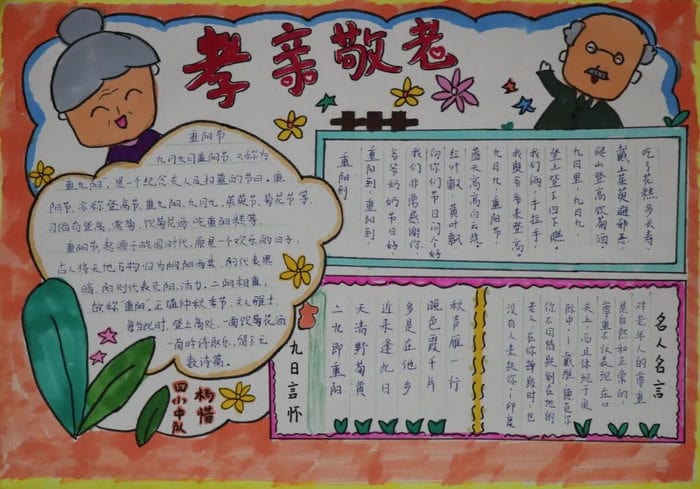 孝亲敬老
重阳节
九月九日重阳节，又称为
重九阳，是一个纪念先人及扫墓的节日，重
阳节，亦称登高节、重九阳、九月九、茱萸节、菊花节等，
习俗有登高、赏菊、饮菊花酒、吃重阳糕等，
重阳节，起源于战国时代，原是一个欢乐的日子，
古人将天地万物归为阴阳两类，阴代表黑
暗，阳则代表光阳、活力，二阳相重，
故称"重阳"。正值仲秋季节，文人雅士，
每当此时，登上高处，一面饮菊花酒
一面吟诗取乐，留下无
数诗篇。
四小中队
杨惜
重阳到
重阳到，重阳到，
爷爷奶奶节日好，
我们非常感谢你，
向你们节日问个好
红叶飘，黄叶飘
蓝天高高白云绕。
九月九，重阳节
我与爷爷来登高。
我们俩，手拉手，
登上登下四下瞧。
九月里，九月九
爬山登高饮菊酒
戴上茱萸避邪恶，
吃了花糕多长寿，
九日言怀
二九即重阳
天清野菊黄
近来逢九日
多是在他乡
晚色霞千片
秋声雁一行
名人名言
对老年人的尊重
是自然和正常的，
尊重不仅表现在口
头上，而且体现于实
际中——戴维·德克尔
老人，在你
没有人去扶你——印度